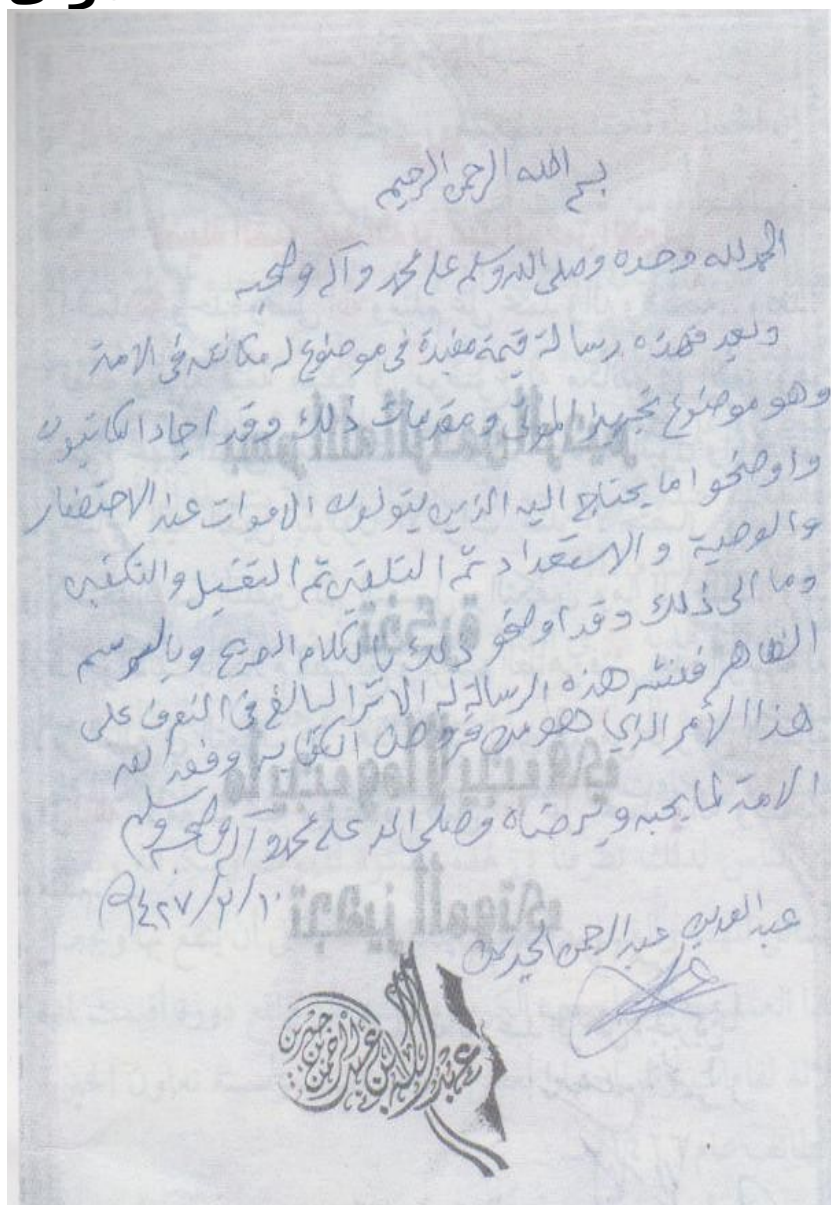 بسم الله الرحمن الرحيم
الحمد لله وحده وصلى الله وسلم على محمد وآله وصحبه
وبعد فهذه رسالة قيمة مفيدة في موضوع له مكانته في الامة
وهو موضوع تجهيز الموتى ومقدمات ذلك وقد اجاد الكاتبون
واوضحوا ما يحتاج اليه الذين يتولون الاموات عند الاحتضار
والوصية والاستعداد ثم التلقين ثم التغسيل والتكفين
وما الى ذلك وقد اوضحو ذلك بالكلام الصريح وبالرسم
الظاهر فنشر هذه الرسالة له الاثر البالغ في التعرف على
هذا الأمر الذي هو من فروض الكفاية وفق الله
الامة لما يحبه ويرضاه وصلى الله على محمد وآله وصحبه وسلم
١٤٢٧/٢/١٠هـ
عبد الله بن عبد الرحمن الجبرين
عبد الله بن عبد الرحمن بن جبرين
بسم الله الرحمن الرحيم
تذكرة
تجهيز الموتى